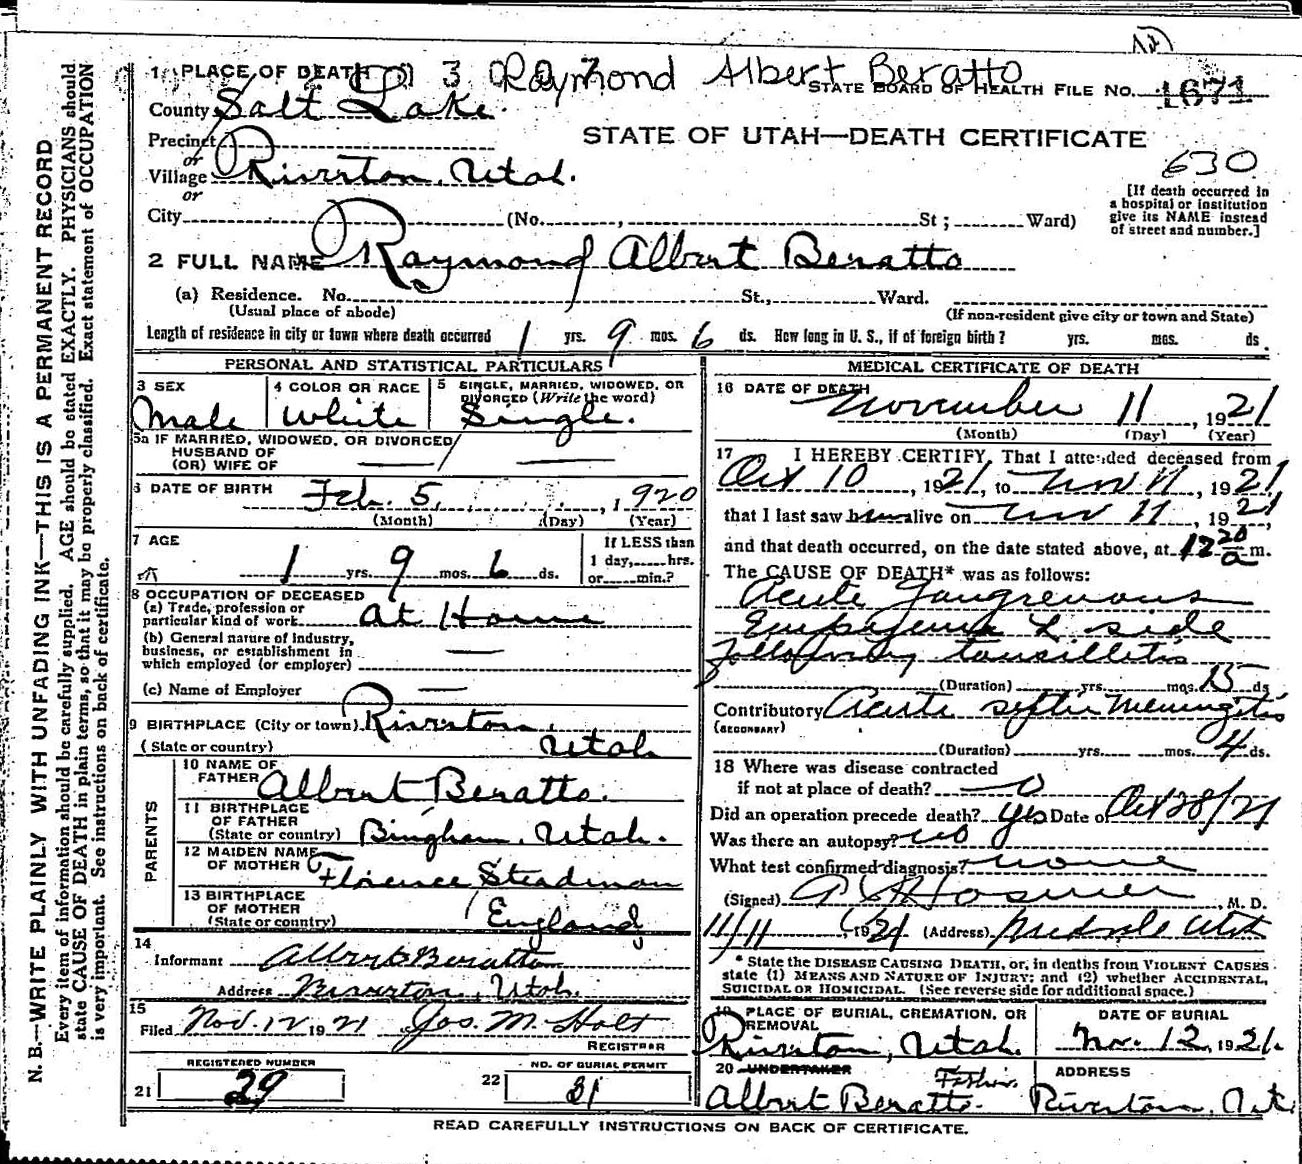 Raymond Albert Beratto
1 PLACE OF DEATH
STATE BOARD OF HEALTH FILE NO. 1671
County Salt Lake.
STATE OF UTAH—DEATH CERTIFICATE
Precinct
or
630
Village Riverton, Utah.
or
[If death occurred in
a hospital or institution
give its NAME instead
of street and number.]
City (No. , St; Ward)
2 FULL NAME Raymond Albert Beratto
(a) Residence. No. St., Ward.
(Usual place of abode) (If non-resident give city or town and State)
Length of residence in city or town where death occurred 1 yrs. 9 mos. 6 ds. How long in U. S., if of foreign birth? yrs. mos. ds.
PERSONAL AND STATISTICAL PARTICULARS
3 SEX
Male
4 COLOR OR RACE
White
5 SINGLE, MARRIED, WIDOWED, OR
DIVORCED (Write the word)
Single.
5a IF MARRIED, WIDOWED, OR DIVORCED
HUSBAND OF
(OR) WIFE OF
6 DATE OF BIRTH Feb. 5, , 1920
(Month) (Day) (Year)
7 AGE
1 yrs. 9 mos. 6 ds.
If LESS than
1 day, hrs.
or min.?
8 OCCUPATION OF DECEASED
(a) Trade, profession or
particular kind of work At Home
(b) General nature of industry,
business, or establishment in
which employed (or employer)
(c) Name of Employer
9 BIRTHPLACE (City or town) Riverton,
(State or country) Utah
PARENTS
10 NAME OF
FATHER Albert Beratto.
11 BIRTHPLACE
OF FATHER
(State or country) Bingham, Utah.
12 MAIDEN NAME
OF MOTHER Florence Steadman
13 BIRTHPLACE
OF MOTHER
(State or country) England
14
Informant Albert Beratto
Address Riverton, Utah.
15
Filed Nov. 12 1921 Jos. M. Holt
REGISTRAR
REGISTERED NUMBER
21 29
NO. OF BURIAL PERMIT
22 31
MEDICAL CERTIFICATE OF DEATH
16 DATE OF DEATH
November 11, 1921
(Month) (Day) (Year)
17 I HEREBY CERTIFY, That I attended deceased from
Oct 10, 1921, to Nov 11, 1921
that I last saw him alive on Nov 11, 1921,
and that death occurred, on the date stated above, at 12 20 a m.
The CAUSE OF DEATH* was as follows:
Acute Gangrenous
Empyema L. side
following tonsillitis
(Duration) yrs. mos. 15 ds
Contributory Acute septic Meningitis
(SECONDARY)
(Duration) yrs. mos. 4 ds.
18 Where was disease contracted
if not at place of death? 0
Did an operation precede death? yes Date of Oct 28/21
Was there an autopsy? no
What test confirmed diagnosis? none
(Signed) Hosmer, M. D.
11/11, 1921 (Address) Midvale Utah
* State the DISEASE CAUSING DEATH, or, in deaths from VIOLENT CAUSES
state (1) MEANS AND NATURE OF INJURY; and (2) whether ACCIDENTAL,
SUICIDAL OR HOMICIDAL. (See reverse side for additional space.)
19 PLACE OF BURIAL, CREMATION, OR
REMOVAL
Riverton, Utah.
DATE OF BURIAL
Nov. 12, 1921.
20 UNDERTAKER Father.
Albert Beratto.
ADDRESS
Riverton, Ut.
READ CAREFULLY INSTRUCTIONS ON BACK OF CERTIFICATE.
N. B.—WRITE PLAINLY WITH UNFADING INK—THIS IS A PERMANENT RECORD
Every item of information should be carefully supplied. AGE should be stated EXACTLY. PHYSICIANS should
state CAUSE OF DEATH in plain terms, so that it may be properly classified. Exact statement of OCCUPATION
is very important. See instructions on back of certificate.